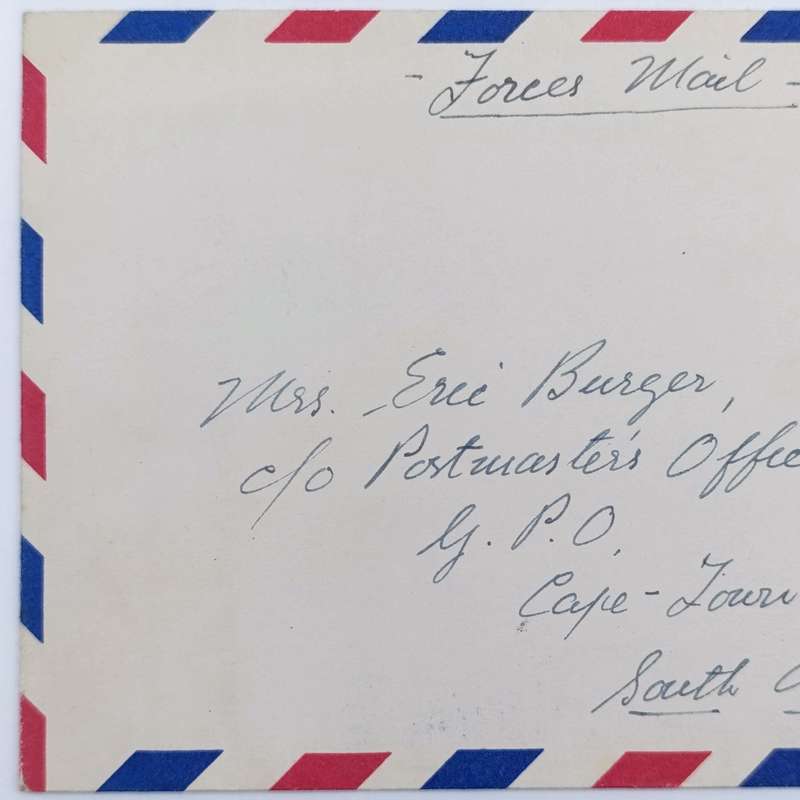 - Forces Mail -
Mrs. Eric Burger,
c/o Postmaster's Office
G. P. O,
Cape-Town
South